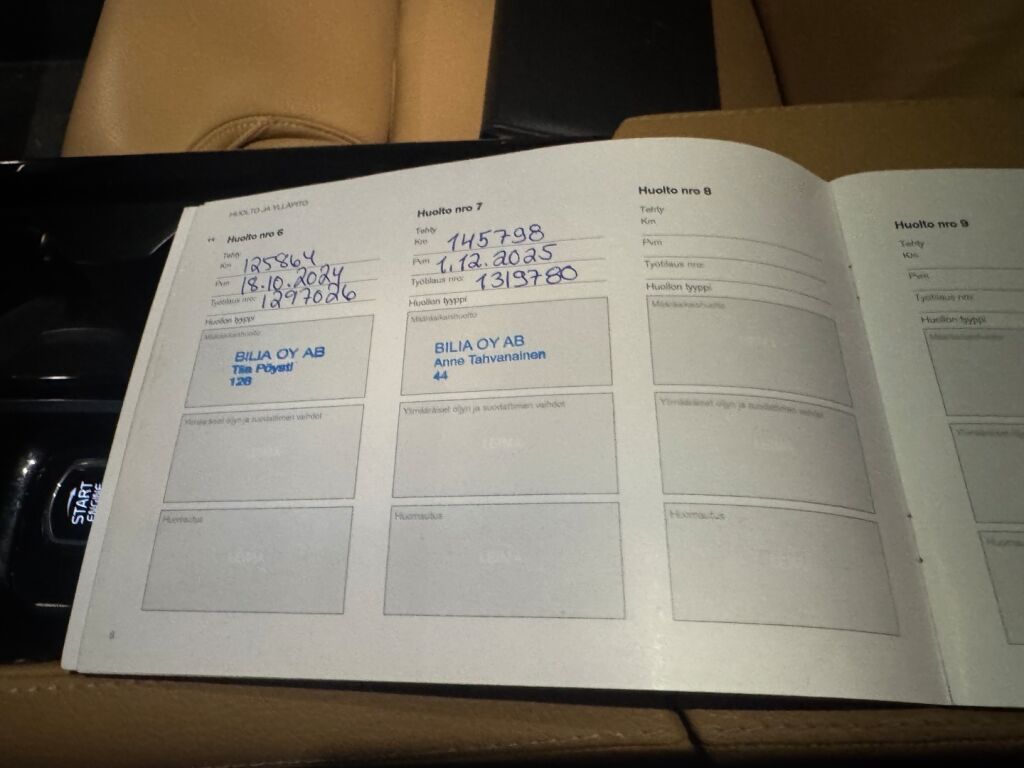 HUOLTO JA YLLÄPITO
Huolto nro 6
Tehty
Km 125864
Pvm 18.10.2024
Työtilaus nro: 1297026
Huollon tyyppi
Määräaikaishuolto
BILIA OY AB
Tiia Pöysti
128
Ylimääräiset öljyn ja suodattimen vaihdot
LEIMA
Huomautus
LEIMA
8
Huolto nro 7
Tehty
Km 145798
Pvm 1.12.2025
Työtilaus nro: 1319780
Huollon tyyppi
Määräaikaishuolto
BILIA OY AB
Anne Tahvanainen
44
Ylimääräiset öljyn ja suodattimen vaihdot
LEIMA
Huomautus
LEIMA
Huolto nro 8
Tehty
Km
Pvm
Työtilaus nro:
Huollon tyyppi
Määräaikaishuolto
Ylimääräiset öljyn ja suodattimen vaihdot
LEIMA
Huomautus
Huolto nro 9
Tehty
Km
Pvm
Työtilaus nro:
Huollon tyyppi
Määräaikaishuolto
Ylimääräiset
START
ENGINE